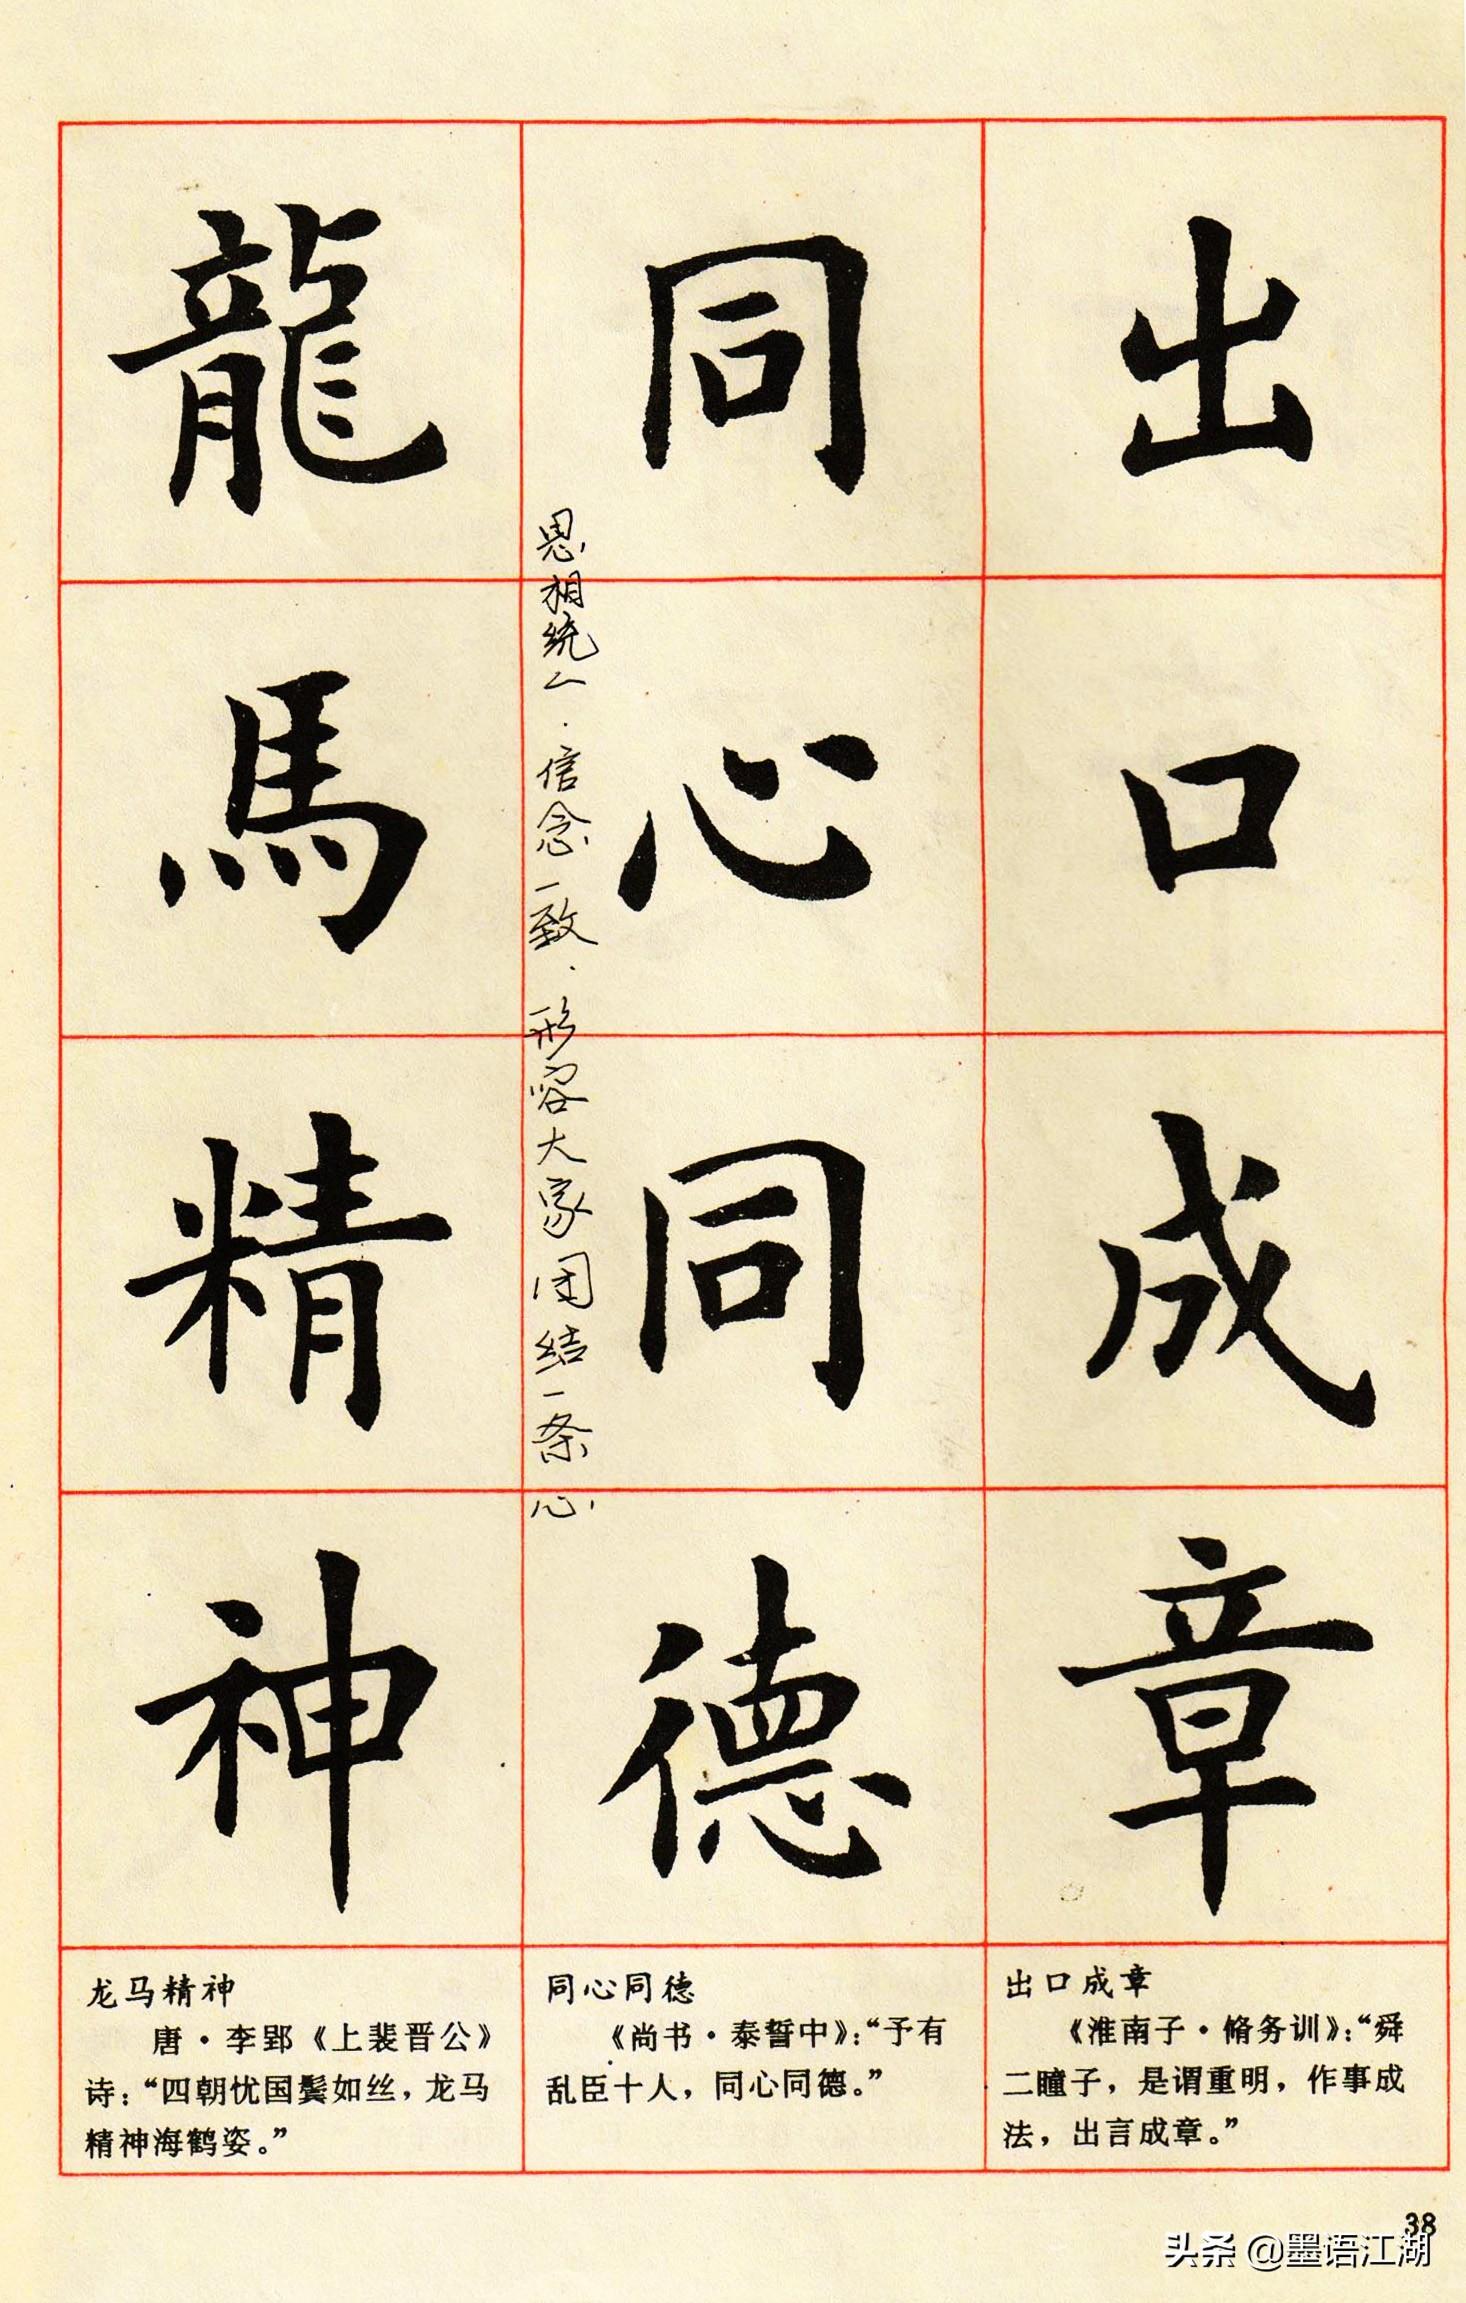 出口成章
同心同德
思相统一.信念一致.形容大家团结一条心.
龍馬精神
出口成章
《淮南子·脩务训》：“舜
二瞳子，是谓重明，作事成
法，出言成章。”
同心同德
《尚书·泰誓中》：“予有
乱臣十人，同心同德。”
龙马精神
唐·李郢《上裴晋公》
诗：“四朝忧国鬓如丝，龙马
精神海鹤姿。”
38
头条 @墨语江湖